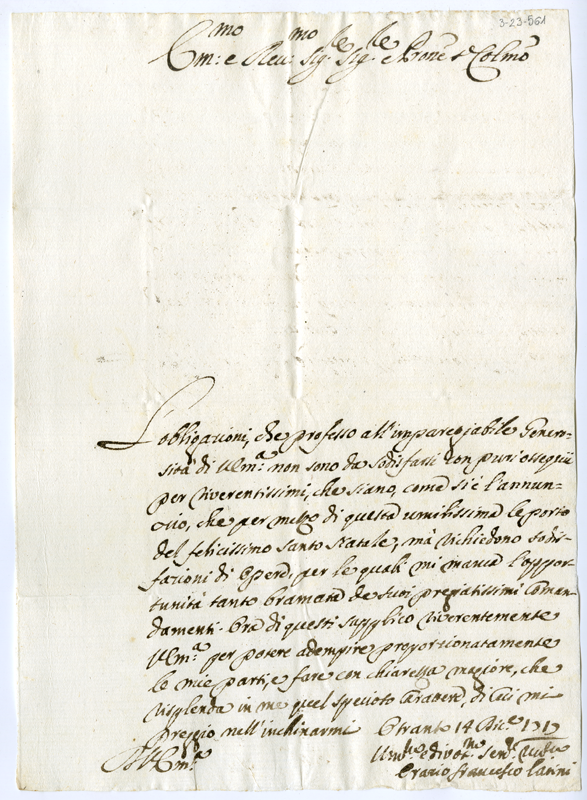 3-23-561
Em:mo e Reu:mo Sig:re Sig:re e Prone Colmo
L'obligazioni, che professo all'impareggiabile Genero=
sità di V Em:a non sono da sodisfarsi con puri ossequij
per riverentissimi, che siano, come si è l'annun=
cio, che per mezzo di questa umilissima le porto
del felicissimo Santo Natale; mà richiedono sodis=
fazioni di Opere, per le quali mi manca l'oppor=
tunità tanto bramata de suoi pregiatissimi Coman=
damenti. Ora di questi supplico riverentemente
V Em:a per potere adempire proporzionatamente
le mie parti, e fare con chiarezza magiore, che
risplenda in me quel specioso Carattere, di cui mi
preggio nell'inchinarmi Otranto 14 Dic:e 1717
Di V Em:a
Um:o e divot:mo Ser:
Orazio Francesco Latini